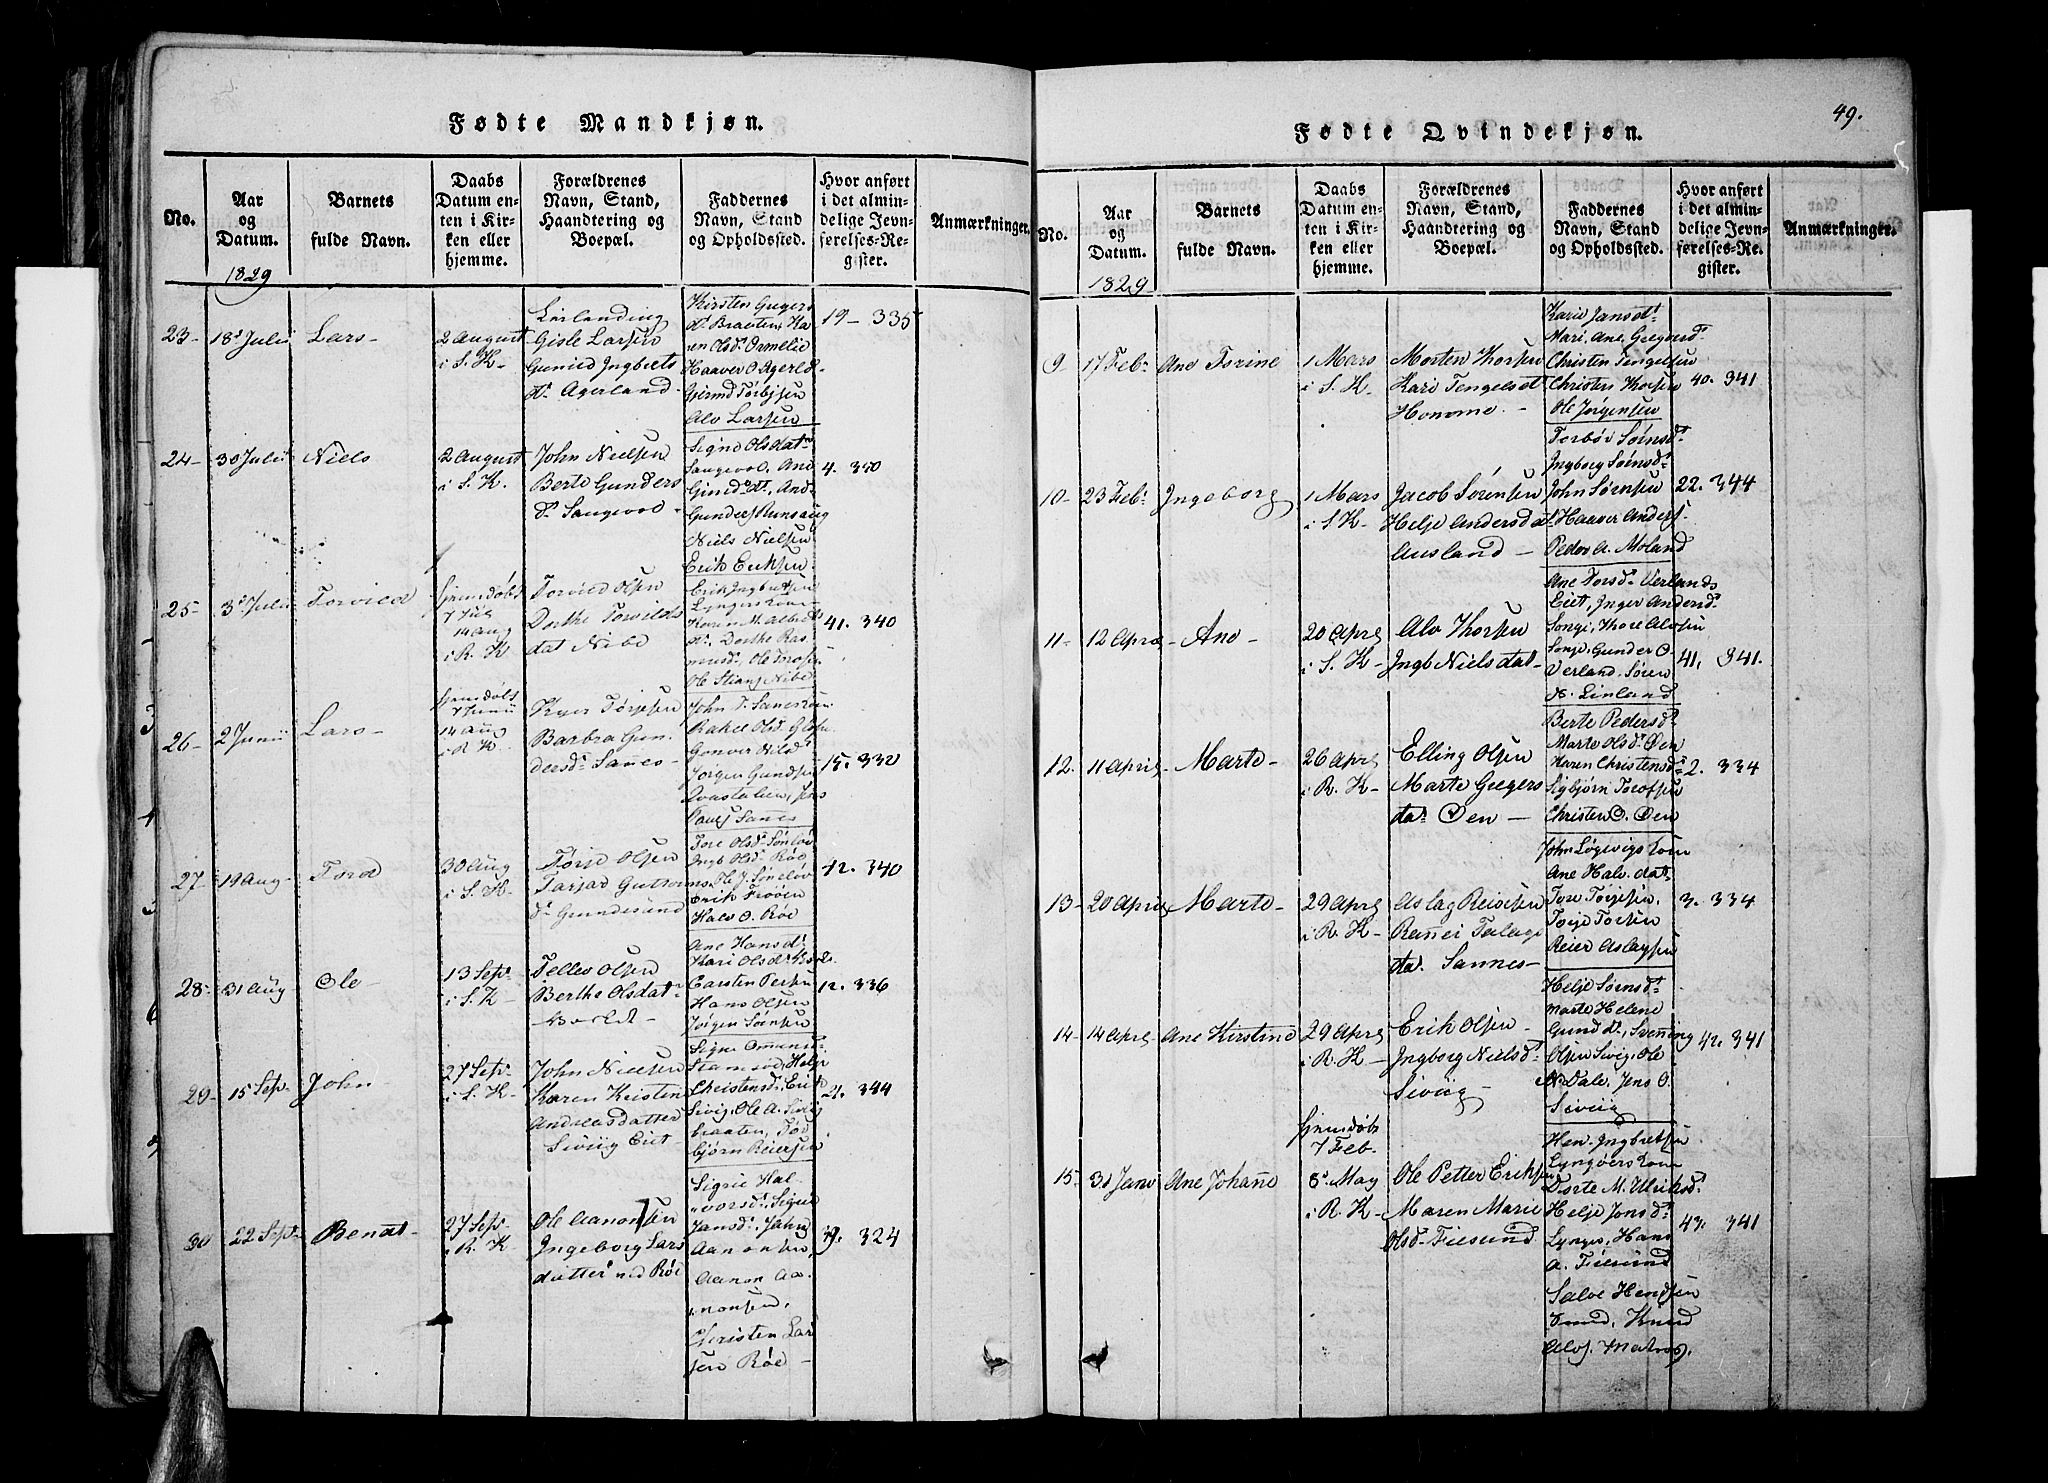 Fødte Mandkjøn.
No.
Aar
og
Datum.
Barnets
fulde Navn.
Daabs
Datum en-
ten i Kir-
ken eller
hjemme.
Forældrenes
Navn, Stand,
Haandtering og
Boepæl.
Faddernes
Navn, Stand
og Opholdssted.
Hvor anført
i det almin-
delige Jevn-
førelses-Re-
gister.
Anmærkninger.
1829
23-
18 Julii
Lars-
2 august
i S. K-
Gisle Larsen
Gunild Ingbrets
Dr. Agerland
Kirsten Gregers
Dr. Braaten, Ka
ren Olsdr. Ormelie
Haaver O. Agerld
Gjermd Torbjsen
Alv Larsen
19- 335
24-
30 Julii
Niels
2 august
i S. K.
John Nielsen
Berte Gunders
dr. Sangevol-
Signe Olsdatr
Sangevol, And
Niels Nielsen
Erik Eriksen
4. 350
25-
3 Julii
Torvild
hjemdøbt
7 Jul
14 aug
i R. K
Torvild Olsen
Dorthe Torvilds
dat Nibe
Erik Ingbretsen
Lyngørs
Karen M. Albredts
dr. Dorthe Ras
musdr. Ole Torosen
Ole Stians Nibe
41. 340
26-
2 Junii
Lars-
hjemdøbt
7 Junii
14 aug
i R. K
Torjesen
Barbra Gun
dersdr. Sanes-
Jørgen Gundsen
Sanes
15. 332
27-
19 Aug-
Tord
30 Aug
i S. K-
Tørje Olsen
Tarjer Guttorms
dr. Grundesund
Tore Olsdr. Sønløv
Ingb Olsdr. Røe
Ole J. Søneløv
Erik Trøien
Halv O. Røe
42. 340
28-
31 Aug
Ole-
13 Sep-
i S. K-
Tellev Olsen
Berthe Olsdatr
Ane Hansdr.
Kari Olsdr.
Carsten Persen
Hans Olsen
Jørgen Sørnsen
12. 336
29-
15 Sep-
John-
27 Sep-
i S. K-
John Nielsen
Karen Kristen
Andreasdatter
Siviig Eiet-
Signe Omunds
Helje
Christensdr. Erik
Sivig, Ole A. Sivig
braaten, Tor
bjørn Reiersen
21. 344
30
22 Sep-
Benat-
27 Sep-
i R. K
Ole Aanonsen
Ingeborg Lars
datter ved Røe
Sigrie Hal-
vorsdr. Signe
Jansdr. Jahn
Aanonsen,
Aanon Aa-
nonsen,
Christen Lar
sen Røe-
39. 324
49.
Fødte Qvindekjøn.
No.
Aar
og
Datum.
Barnets
fulde Navn.
Daabs
Datum en-
ten i Kir-
ken eller
hjemme.
Forældrenes
Navn, Stand,
Haandtering og
Boepæl.
Faddernes
Navn, Stand
og Opholdssted.
Hvor anført
i det almin-
delige Jevn-
førelses-Re-
gister.
Anmærkninger.
1829
9-
17 Feb-
Ane Torine
1 Mars
i S. K-
Morten Thorsen
Kari Tengelsdt
Honome.-
Karie Jansdt
Mari. Ane Gregersdr
Christen Tengelsen
Christen Thorsen
Ole Jørgensen
40. 341
10-
23 Feb.
Ingeborg
1 Mars
i S. K-
Jacob Sørensen
Helje Andersdat
Ausland-
Torbør Sørnsdr
Ingborg Sørnsdr
John Sørnsen
Haaver Anders.
Peder A. Moland
22. 344
11-
12 April
Ane-
20 April
i S. K-
Alv Thorsen
Ingb Nielsdat-
Ane Torsdr Verlands
Eiet, Inger Andersdr
Songe, Thore Alvsen
Songe, Gunder O.
Verland, Søren
N. Linland
41. 341.
12.
11 April
Marte-
26 April
i R. K-
Elling Olsen
Marte Gregers
datr Øen-
Berte Pedersdr
Marte Olsdr. Øen
Karen Christensdr
Sigbjørn Torofsen
Christen O. Øen
2. 334
13-
20 April
Marte-
29 April
i R. K-
Aslag Reiersen
Rannei Talage
datr. Sannes-
John Løgevigs kone
Ane Halv. datr
Tore Torjesen,
Torje Torsen
Reier Aslagsen
3. 334
14-
14 April
Ane Kirstine
29 April
i R. K-
Erik Olsen-
Ingborg Nielsdr
Siviig-
Helje Sørnsdr
Marte Helene
Gund dr., Svenning
Olsen Sivig, Ole
N. Dale, Jens O.
Siviig
42. 341
15-
31 Janv
Ane Johane
hjemdøbt
7 Feb.
8 May
i R. K-
Ole Petter Eriksen
Maren Marie
Olsdr Fiesund
Hen. Ingbretsen
Lyngøers kone
Dorte M. Ulriksdr
Helje Jonsdr
Lyngør, Hans
A. Fiesund
Salve Hendsen
Knud
Alvs. Matros.
43. 341